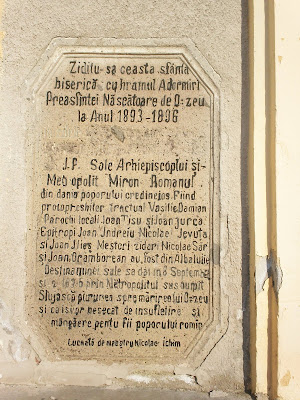 Ziditu-sa ceasta sfânta
biserică cu hramul Adormiri
Preasfintei Născătoare de D-zeu
la Anul 1893-1896
J.P. Sale Arhiepiscoplui și-
Metropolit Miron Romanul
din dania poporului credincios. Fiind
protopresbiter Tractual Vasilie Damian
Parochi locali Joan Tisu și Joan Jurca
Epitropi Joan Andreiu Nicolae Jevuța
și Joan Jlieș Mesteri zidari Nicolae Sar
și Joan Oramborean au fost din Albaiulie
Destinaminei sale sa dai mă Septembrie
1896 prin Metropolitul sus numit
Slujască pururea spre mărirelui D-zeu
și ca isvor nesecat de insufletire și
mângăere pentu fii poporului romîn
Lucrată de maestru Nicolae Ichim